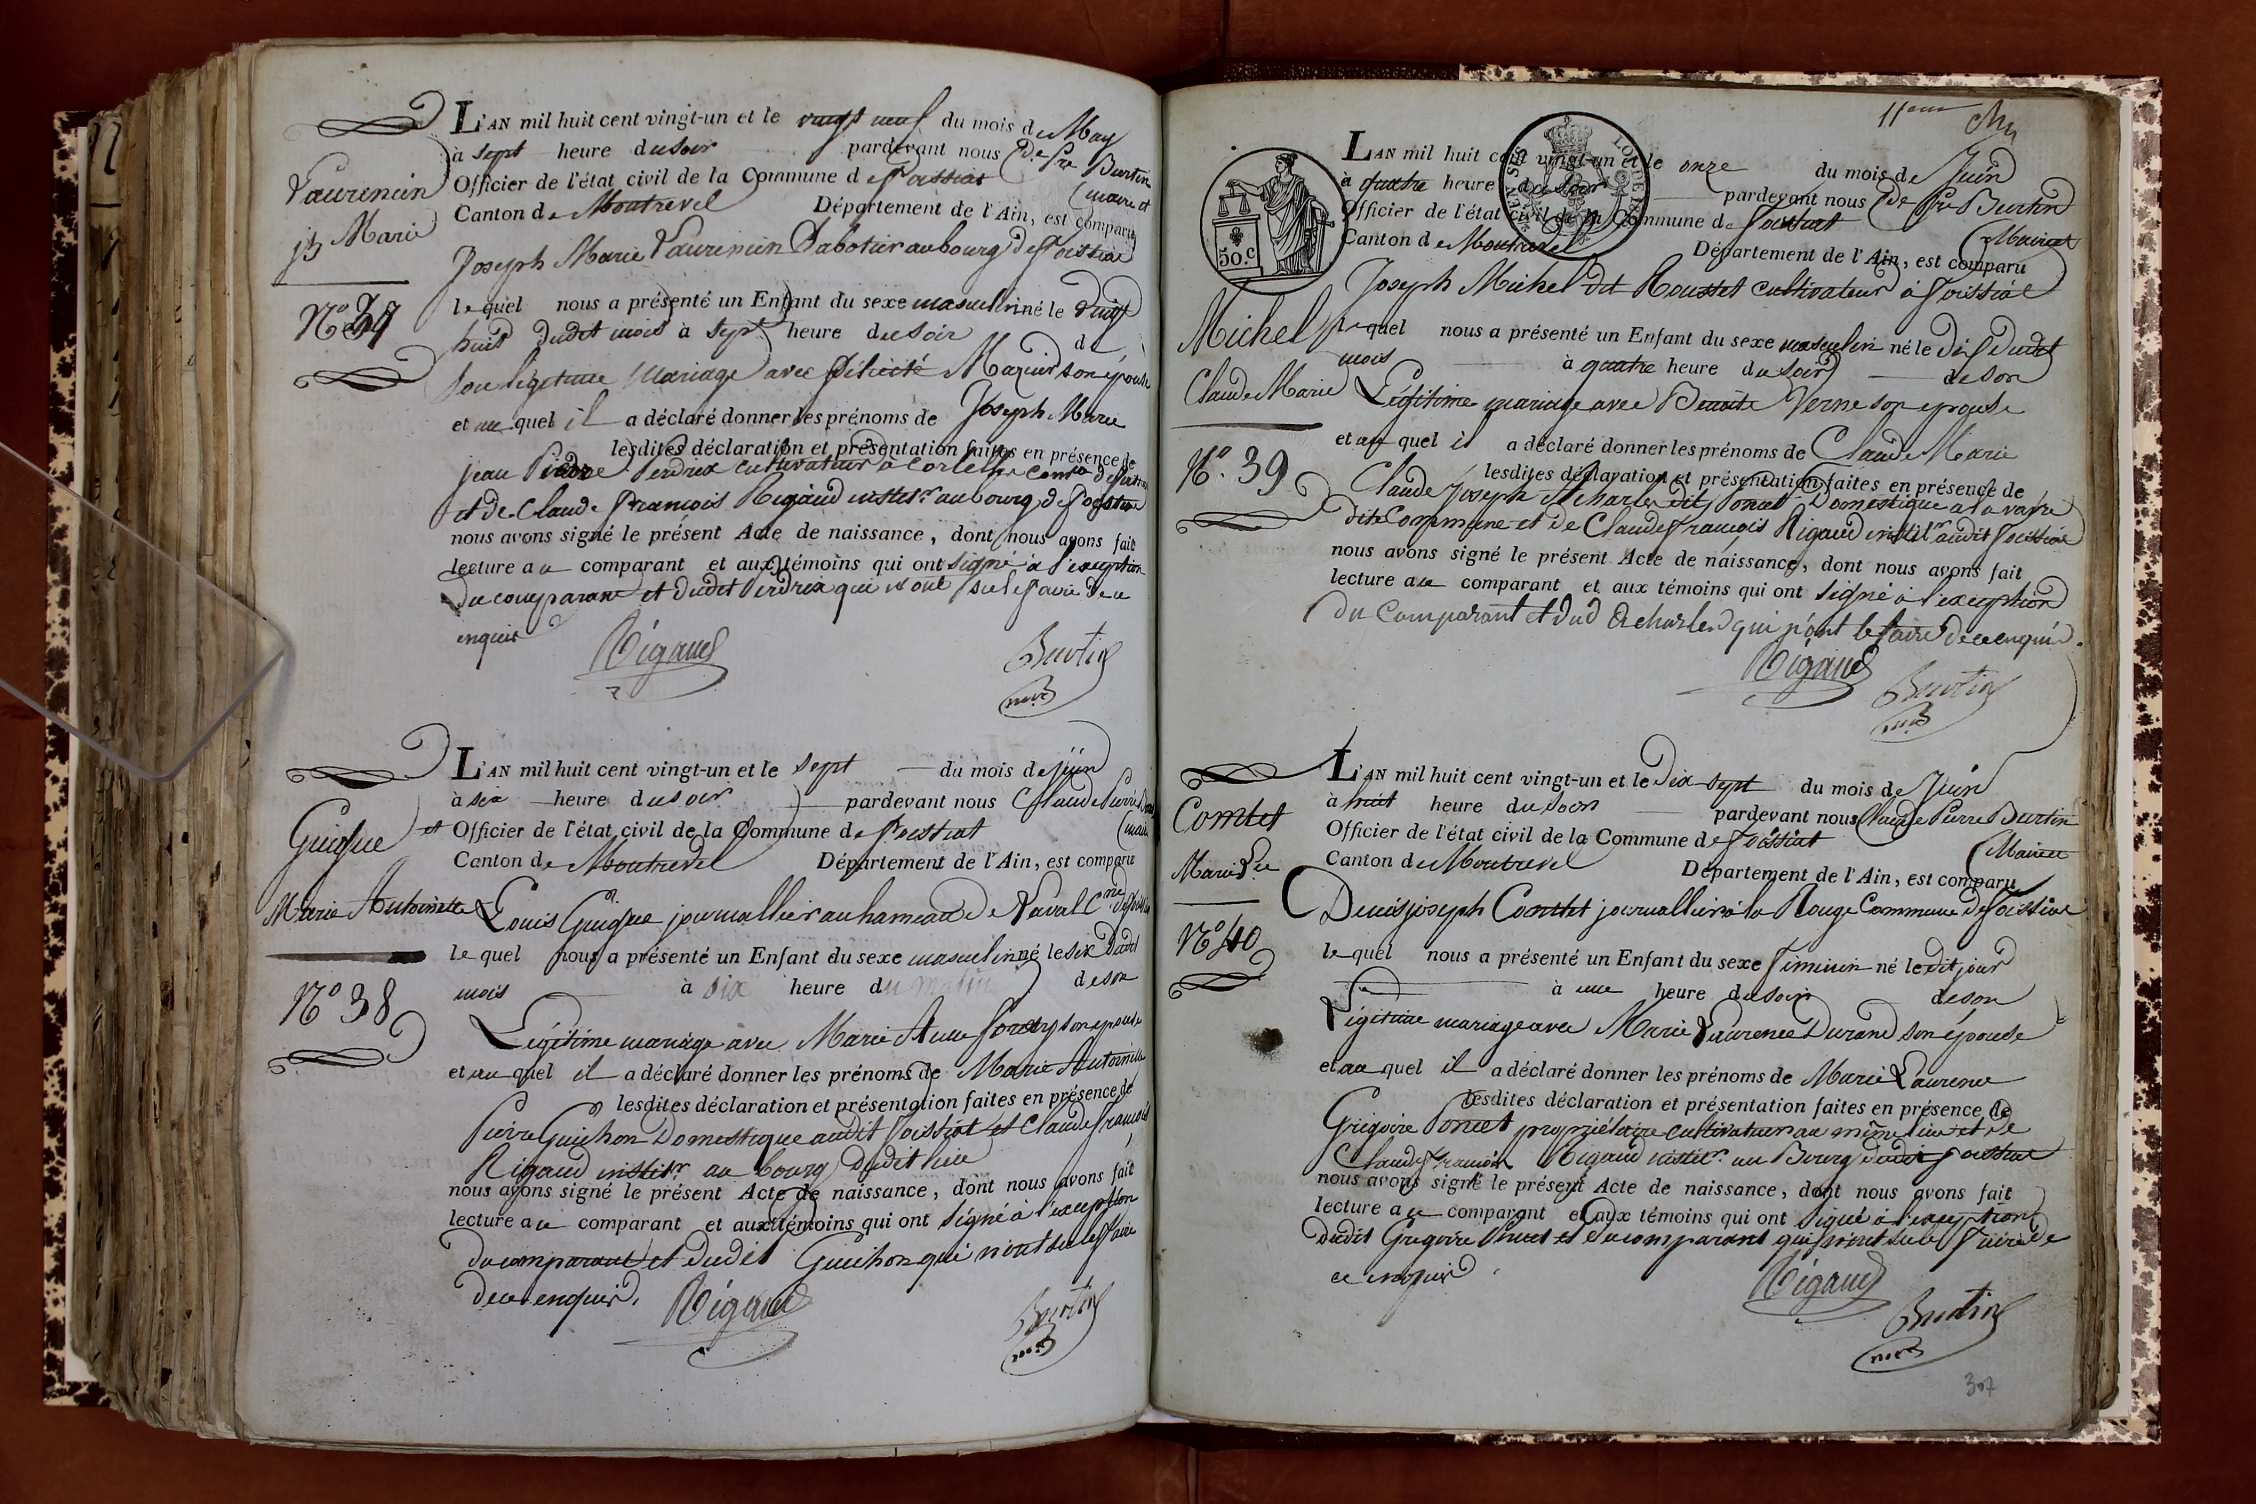 L'AN mil huit cent vingt-un et le vingt neuf du mois de May
à sept heure du soir pardevant nous Cde Pre Burtin
Officier de l'état civil de la Commune de Foissiat maire et
Canton de Montrevel Département de l'Ain, est comparu
Joseph Marie Laurencin Sabotier au bourg de Foissiat
le quel nous a présenté un Enfant du sexe masculin né le vingt
huit dudit mois à sept heure du soir de
son légitime mariage avec Félicité son épouse
et au quel il a déclaré donner les prénoms de Joseph Marie
lesdites déclaration et présentation faites en présence de
jean Pierre Perdrix cultivateur à
et de Claude François Rigaud instit.r au bourg de Foissiat
nous avons signé le présent Acte de naissance, dont nous avons fait
lecture au comparant et aux témoins qui ont signé à l'exception
du comparant et dudit Perdrix qui n'ont su le faire de ce
enquis
Rigaud Burtin
Laurencin
jh Marie
N.o 37
L'AN mil huit cent vingt-un et le sept du mois de juin
à six heure du soir pardevant nous Claude Pierre
et Officier de l'état civil de la Commune de Foissiat maire
Canton de Montrevel Département de l'Ain, est comparu
Louis Guigue journallier au hameau de Laval
le quel nous a présenté un Enfant du sexe masculin né le six dudit
mois à six heure du matin de son
Légitime mariage avec Marie Anne son épouse
et au quel il a déclaré donner les prénoms de Marie Antoinette
lesdites déclaration et présentation faites en présence de
Pierre Guichon Domestique audit Foissiat et Claude François
Rigaud instit.r au bourg dudit lieu
nous avons signé le présent Acte de naissance, dont nous avons fait
lecture au comparant et aux témoins qui ont signé à l'exception
du comparant et dudit Guichon qui n'ont su le faire
de ce enquis.
Rigaud Burtin
Guigue
Marie Antoinette
N.o 38
11eme
50.c
L'AN mil huit cent vingt-un et le onze du mois de Juin
à quatre heure du soir pardevant nous Cde Pre Burtin
Officier de l'état civil de la Commune de Foissiat
Canton de Montrevel Maire et
Département de l'Ain, est comparu
Joseph Michel dit Rousset cultivateur à Foissiat
le quel nous a présenté un Enfant du sexe masculin né le dix dudit
mois à quatre heure du soir de son
Légitime mariage avec Benoite Verne son epouse
et au quel il a déclaré donner les prénoms de Claude Marie
lesdites déclaration et présentation faites en présence de
Claude Joseph dit Poncet Domestique à
dite Commune et de Claude François Rigaud instit.r audit Foissiat
nous avons signé le présent Acte de naissance, dont nous avons fait
lecture au comparant et aux témoins qui ont signé à l'exception
du comparant et dud qui n'ont le faire de ce enquis.
Rigaud
Burtin
Michel
Claude Marie
N.o 39
L'AN mil huit cent vingt-un et le dix sept du mois de Juin
à huit heure du soir pardevant nous Claude Pierre Burtin
Officier de l'état civil de la Commune de Foissiat
Canton de Montrevel Maire et
Département de l'Ain, est comparu
Denis joseph Comtet journallier à la Rouge Commune de Foissiat
le quel nous a présenté un Enfant du sexe féminin né ledit jour
à une heure du soir de son
Légitime mariage avec Marie Laurence Durand son épouse
et au quel il a déclaré donner les prénoms de Marie Laurence
lesdites déclaration et présentation faites en présence de
Grégoire Poncet propriétaire cultivateur au même lieu et de
Claude François Rigaud instit.r au Bourg dudit Foissiat
nous avons signé le présent Acte de naissance, dont nous avons fait
lecture au comparant et aux témoins qui ont signé à l'exception
dudit Grégoire Poncet et du comparant qui n'ont su le faire de
ce enquis
Rigaud
Burtin
Comtet
Marie Lce
N.o 40
307